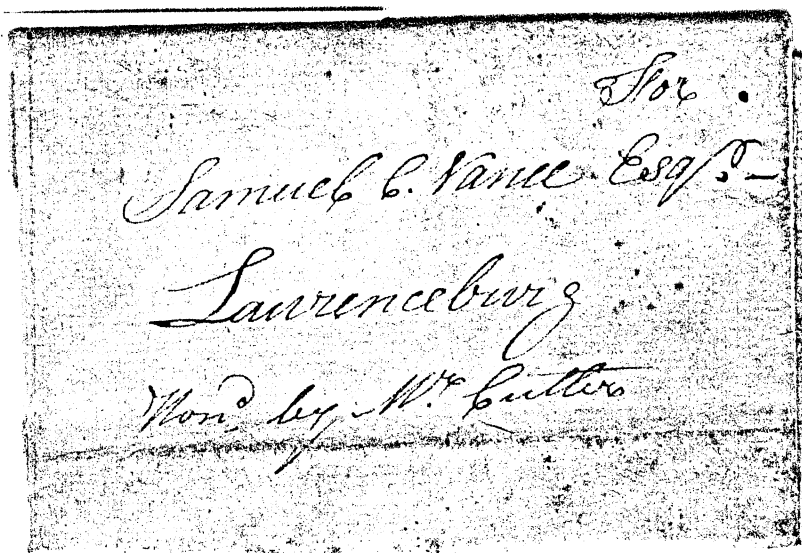 For
Samuel C. Vance Esqr.
Lawrenceburg
Hond by Mr Cutter